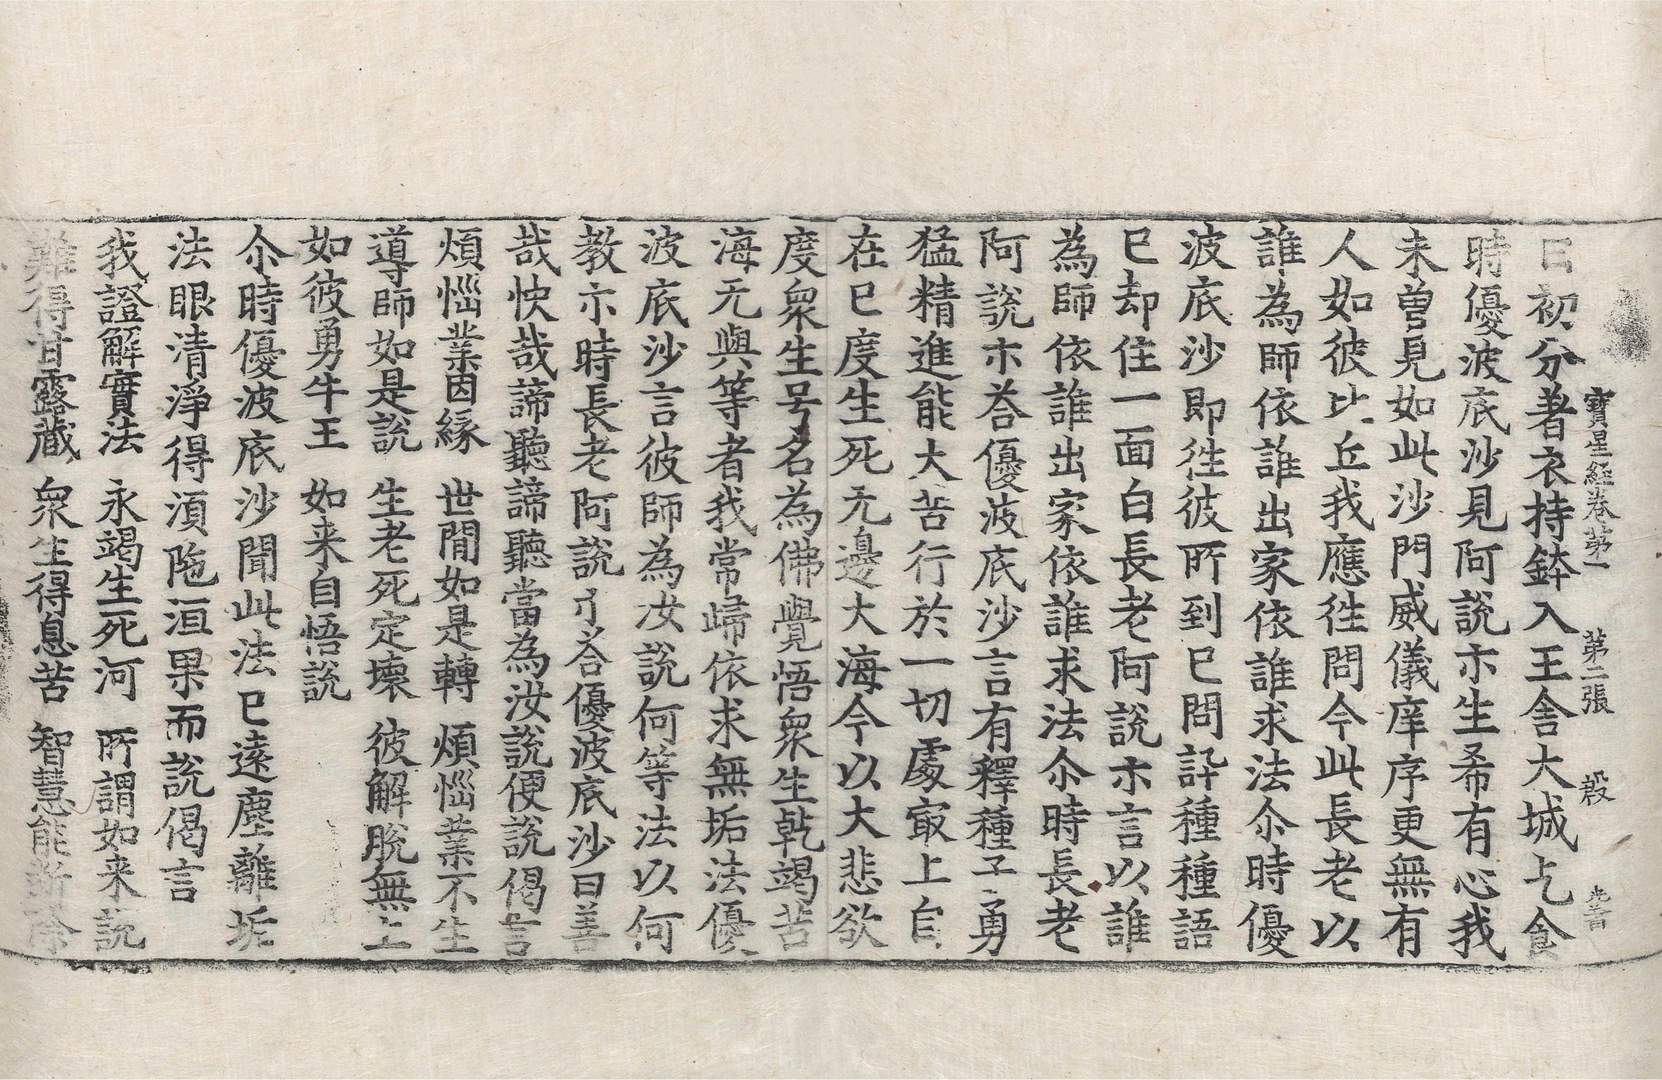 寶星経卷苐一　苐二張　㲉　光普
日初分著衣持鉢入王舎大城乞食
時優波底沙見阿說亦生希有心我
未曽見如此沙門威儀庠序更無有
人如彼比丘我應徃問今此長老以
誰為師依誰出家依誰求法尒時優
波底沙即徃彼所到已問訊種種語
已却住一面白長老阿說亦言以誰
為師依誰出家依誰求法尒時長老
阿說亦荅優波底沙言有釋種子勇
猛精進能大苦行於一切處㝡上自
在已度生死无邊大海今以大悲欲
度衆生号名為佛覺悟衆生乾竭苦
海无與等者我常歸依求無垢法優
波底沙言彼師為汝說何等法以何
教亦時長老阿說亦荅優波底沙曰善
哉快哉諦聽諦聽當為汝說便說偈言
煩惱業因緣　世間如是轉　煩惱業不生
導師如是說　生老死定壞　彼解脫無上
如彼勇牛王　如来自悟說
尒時優波底沙聞此法已遠塵離垢
法眼清淨得湏陁洹果而說偈言
我證解實法　永竭生死河　所謂如来說
難得甘露藏　衆生得息苦　智慧能斷除